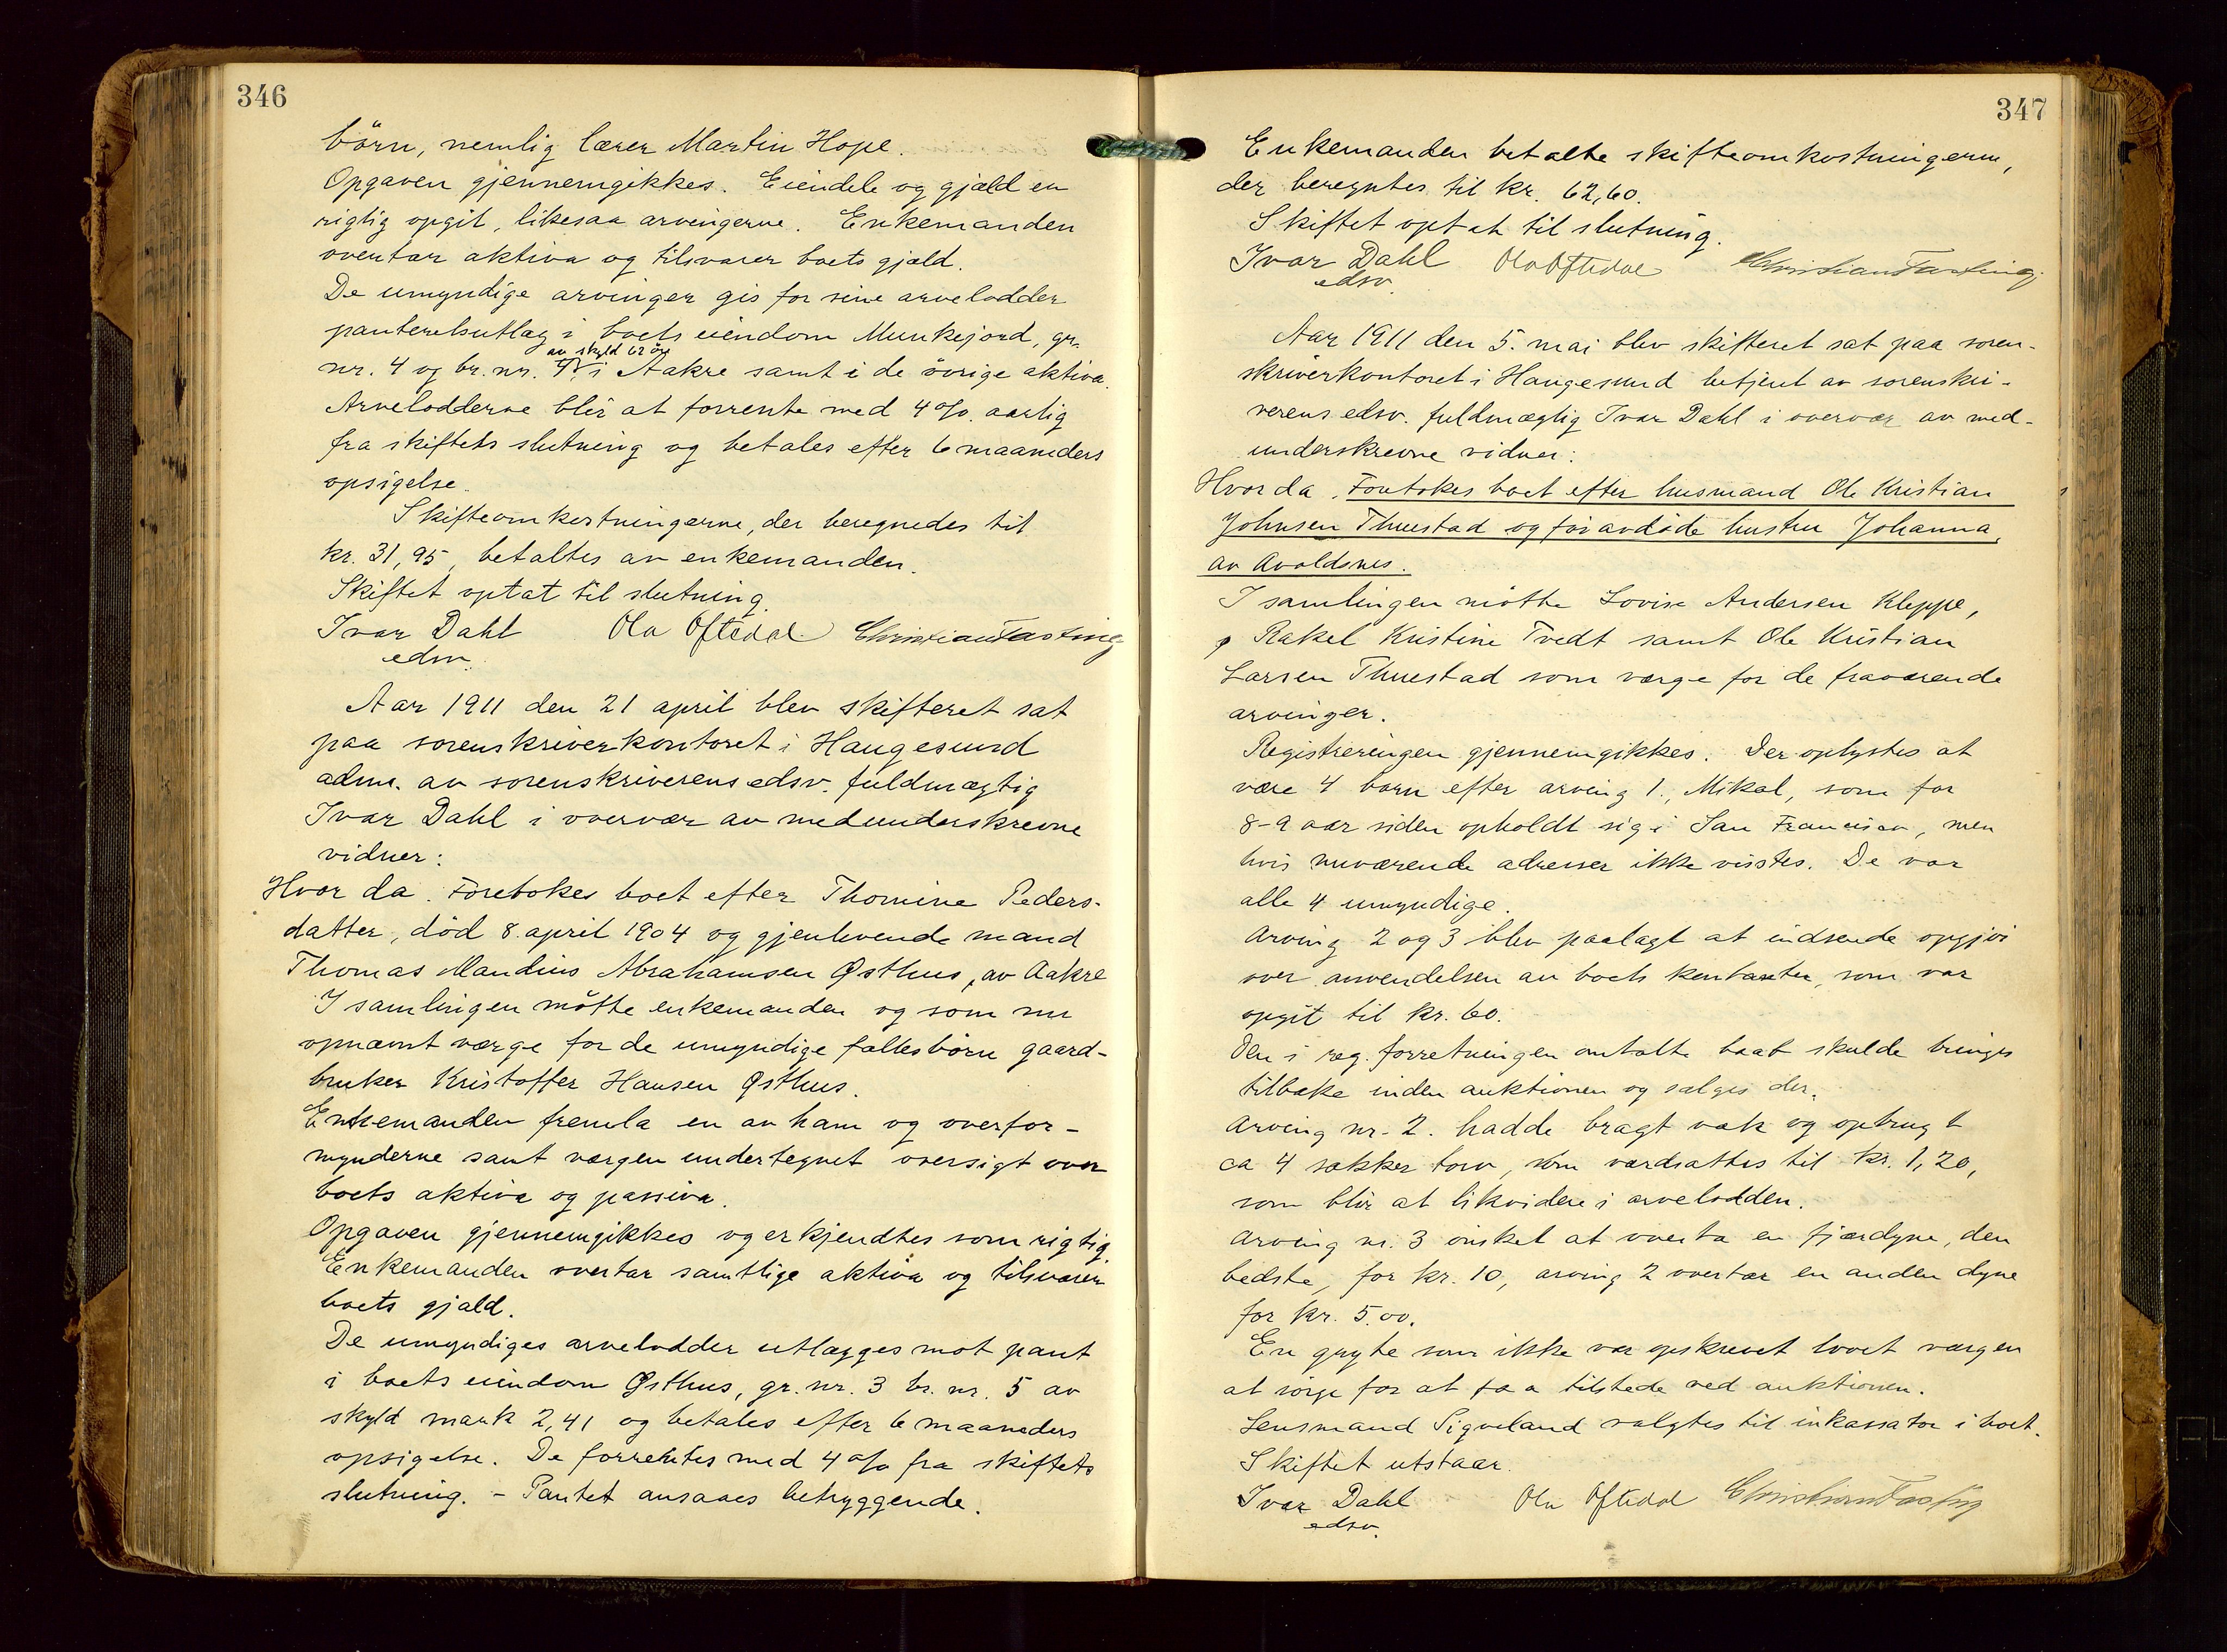 346
børn, nemlig lærer Martin Hope.
Opgaven gjennemgikkes. Eiendele og gjæld er
rigtig opgit, likesaa arvingerne. Enkemanden
overtar aktiva og tilsvarer boets gjæld.
De umyndige arvinger gis for sine arvelodder
panterelsutlæg i boets eiendom Munkejord, gr.
av skyld 62 øre
nr. 4 og br. nr. 4, i Aakre samt i de øvrige aktiva.
Arvelodderne blir at forrente med 4 % aarlig
fra skiftets slutning og betales efter 6 maaneders
opsigelse.
Skifteomkostningerne, der beregnedes til
kr. 31,95, betaltes av enkemanden.
Skiftet optat til slutning.
Ivar Dahl Ola Oftedal Christian Fasting
edsv.
Aar 1911 den 21 april blev skifteret sat
paa sorenskriverkontoret i Haugesund
adm. av sorenskriverens edsv. fuldmægtig
Ivar Dahl i overvær av medunderskrevne
vidner:
Hvor da. Foretokes boet efter Thomine Peders-
datter, död 8. april 1904 og gjenlevende mand
Thomas Mandius Abrahamsen Østhus, av Aakre
I samlingen mötte enkemanden og som nu
opnævnt værge for de umyndige fællesbörn gaard-
bruker Kristoffer Hansen Østhus.
Enkemanden fremla en av ham og overfor-
mynderne samt værgen undertegnet oversigt over
boets aktiva og passiva.
Opgaven gjennemgikkes og erkjendtes som rigtig.
Enkemanden overtar samtlige aktiva og tilsvarer
boets gjæld.
De umyndiges arvelodder utlægges mot pant
i boets eiendom Østhus, gr. nr. 3 br. nr. 5 av
skyld mark 2,41 og betales efter 6 maaneders
opsigelse. De forrentes med 4 % fra skiftets
slutning. - Pantet ansaaes betryggende.
347
Enkemanden betalte skifteomkostningerne,
der beregntes til kr. 62,60.
Skiftet optat til slutning.
Ivar Dahl Ola Oftedal Christian Fasting.
edsv.
Aar 1911 den 5. mai blev skifteret sat paa soren-
skriverkontoret i Haugesund betjent av sorenskri-
verens edsv. fuldmægtig Ivar Dahl i overvær av med-
underskrevne vidner:
Hvor da. Foretokes boet efter husmand Ole Kristian
Johnsen Thuestad og foravdöde hustru Johanna,
av Avaldsnes.
I samlingen mötte Lovise Andersen Kleppe,
Rakel Kristine Tvedt samt Ole Kristian
Larsen Thuestad som værge for de fraværende
arvinger.
Registreringen gjennemgikkes. Der oplystes at
være 4 barn efter arving 1., Mikal, som for
8-9 aar siden opholdt sig i San Francisco, men
hvis nuværende adresser ikke visstes. De var
alle 4 umyndige.
Arving 2 og 3 blev paalagt at indsende opgjör
over anvendelsen av boets kontanter, som var
opgit til kr. 60.
Den i reg. forretningen omtalte baat skulde bringes
tilbake inden auktionen og sælges der.
Arving nr. 2. hadde bragt væk og opbrugt
ca 4 sækker torv, som værdsattes til kr. 1,20,
som blir at likvidere i arvelodden.
Arving nr. 3 ønsket at overta en fjærdyne, den
bedste, for kr. 10, arving 2 overtar en anden dyne
for kr. 5.00.
En gryte som ikke var opskrevet lovet værgen
at sörge for at faa tilstede ved auktionen.
Lensmand Sigveland valgtes til inkassator i boet.
Skiftet utstaar.
Ivar Dahl Ola Oftedal Christian Fasting
edsv.